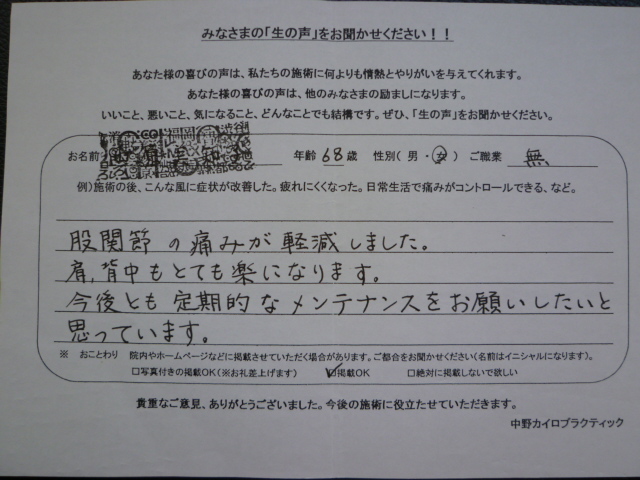 みなさまの「生の声」をお聞かせください！！
あなた様の喜びの声は、私たちの施術に何よりも情熱とやりがいを与えてくれます。
あなた様の喜びの声は、他のみなさまの励ましになります。
いいこと、悪いこと、気になること、どんなことでも結構です。ぜひ、「生の声」をお聞かせください。
お名前 年齢 68 歳 性別（男・女）ご職業 無
例）施術の後、こんな風に症状が改善した。疲れにくくなった。日常生活で痛みがコントロールできる、など。
股関節の痛みが軽減しました。
肩、背中もとても楽になります。
今後とも定期的なメンテナンスをお願いしたいと
思っています。
※ おことわり 院内やホームページなどに掲載させていただく場合があります。ご都合をお聞かせください（名前はイニシャルになります）。
□写真付きの掲載OK（※お礼差上げます） ☑掲載OK □絶対に掲載しないで欲しい
貴重なご意見、ありがとうございました。今後の施術に役立たせていただきます。
中野カイロプラクティック